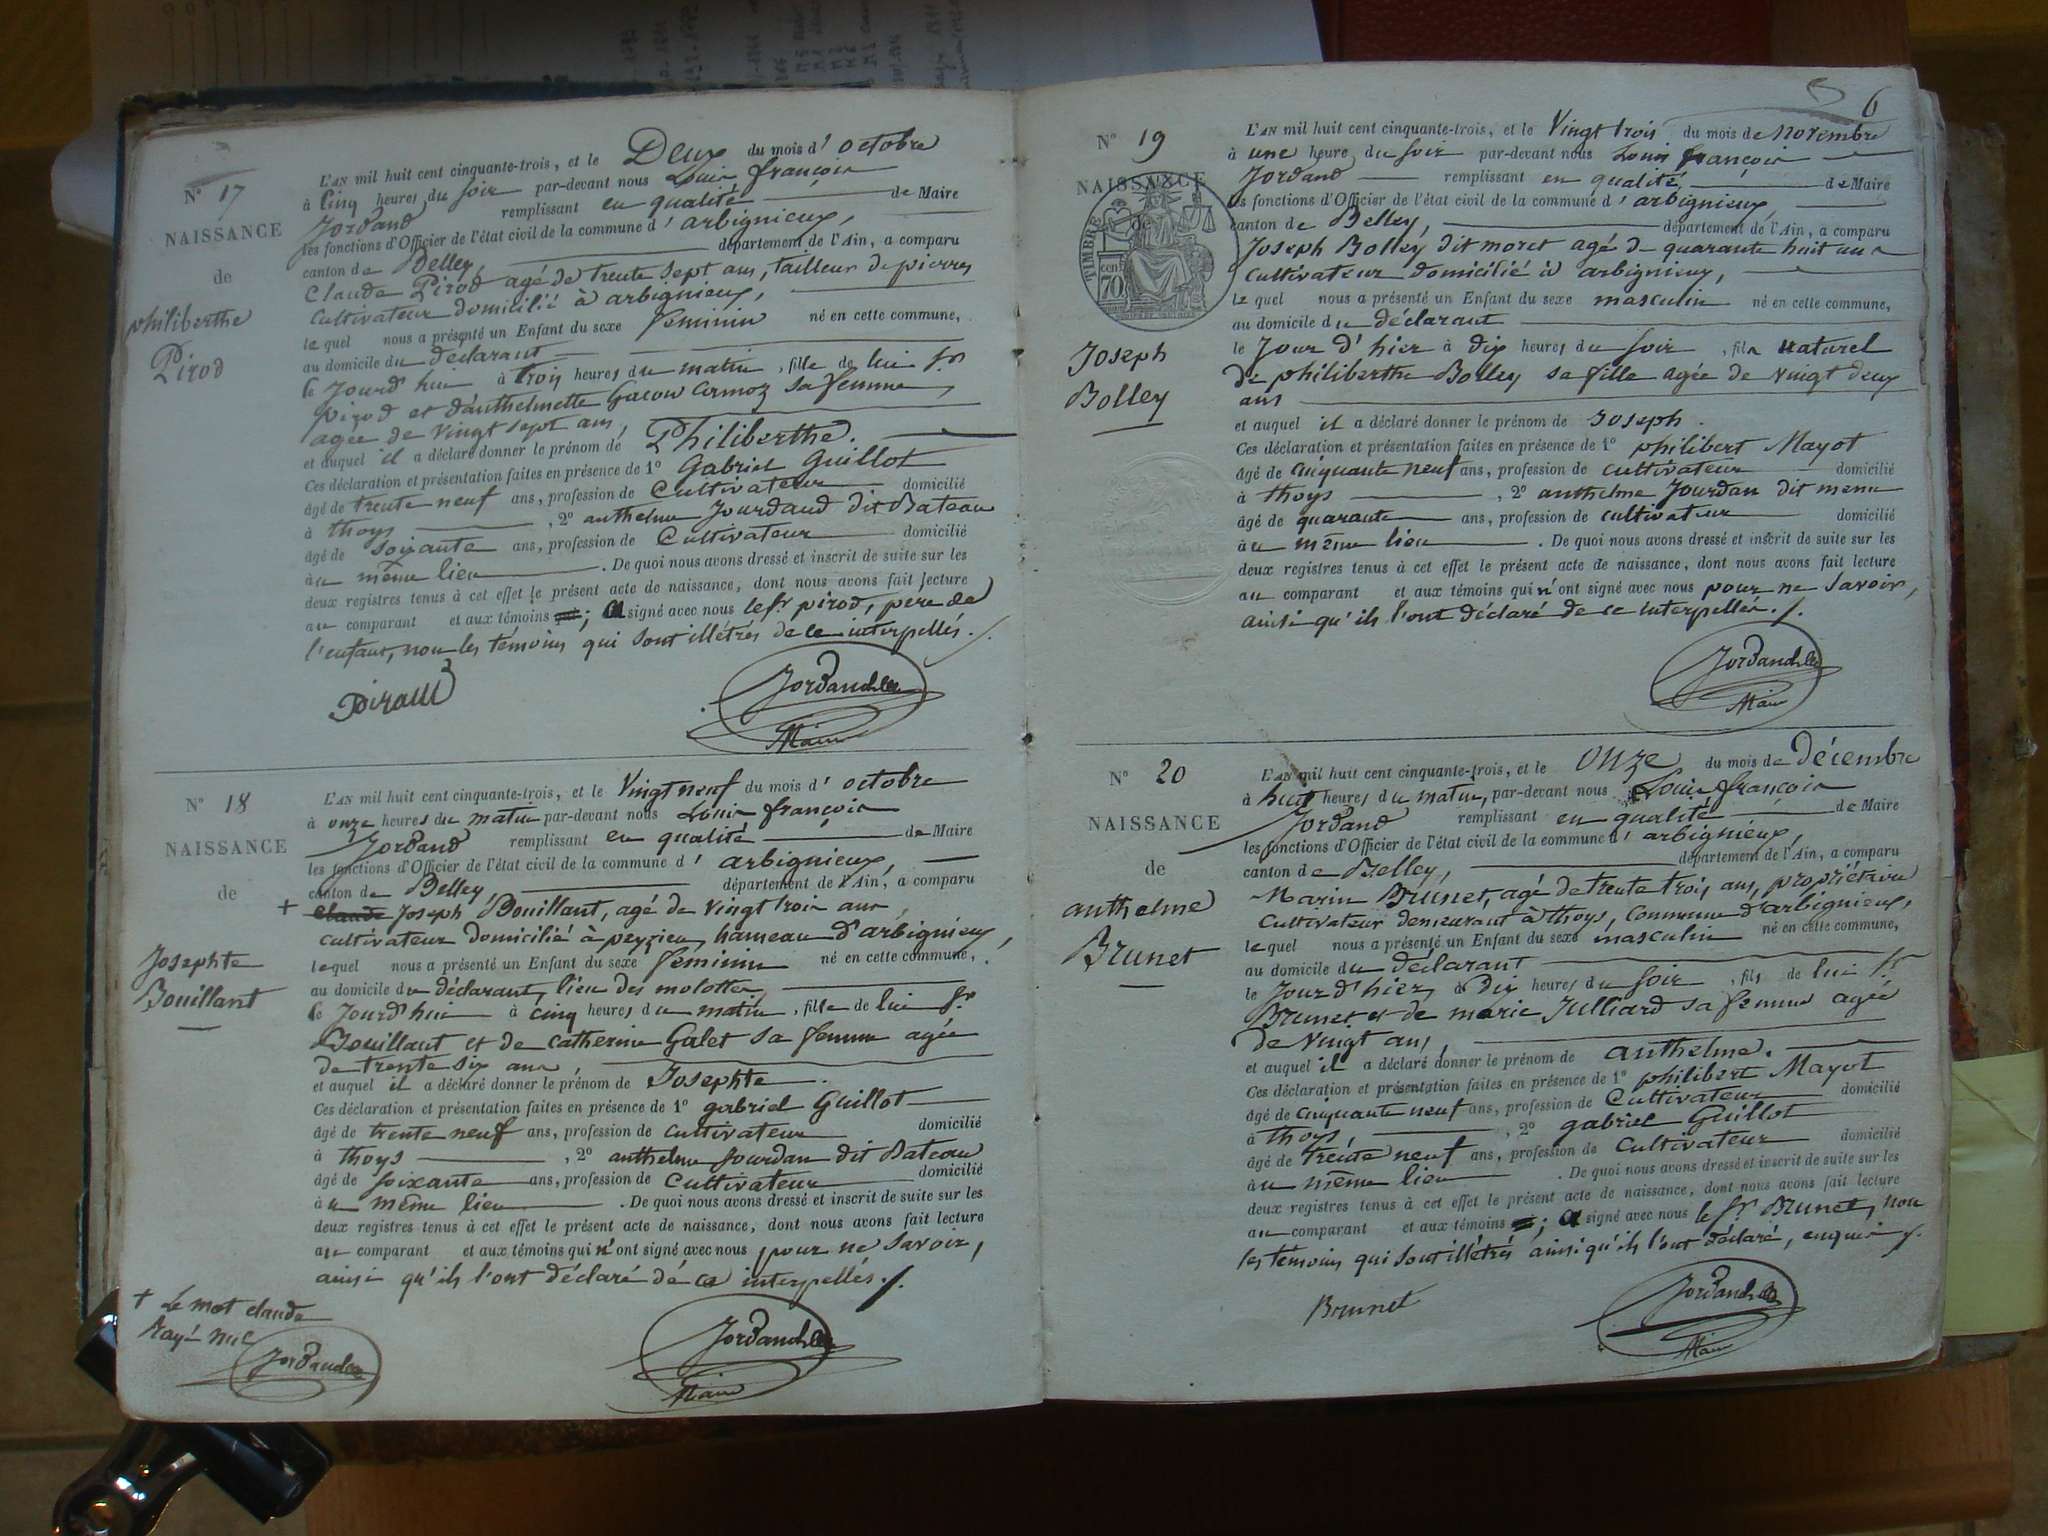 N° 17
NAISSANCE
de
philiberthe
Pirod
L'AN mil huit cent cinquante-trois, et le Deux du mois d' octobre
à cinq heures du soir par-devant nous Louis françois
Jordand remplissant en qualité de Maire
les fonctions d'Officier de l'état civil de la commune d' arbignieux,
canton de Belley, département de l'Ain, a comparu
Claude Pirod agé de trente sept ans, tailleur de pierres
cultivateur domicilié à arbignieux,
le quel nous a présenté un Enfant du sexe féminin né en cette commune,
au domicile du déclarant
le Jourd'hui à trois heures du matin, fille de lui Sr
pirod et d'anthelmette Gacon Cornoz sa femme,
agée de vingt sept ans,
et auquel il a déclaré donner le prénom de Philiberthe.
Ces déclaration et présentation faites en présence de 1° Gabriel Guillot
âgé de trente neuf ans, profession de Cultivateur domicilié
à thoys, 2° anthelme Jourdand dit Bateau
âgé de soixante ans, profession de Cultivateur domicilié
au même lieu. De quoi nous avons dressé et inscrit de suite sur les
deux registres tenus à cet effet le présent acte de naissance, dont nous avons fait lecture
au comparant et aux témoins ; a signé avec nous le Sr pirod, père de
l'enfant, non les témoins qui sont illétrés de ce interpellés.
Piraud
Jordand
Maire
N° 18
NAISSANCE
de
Josephte
Bouillant
L'AN mil huit cent cinquante-trois, et le Vingt neuf du mois d' octobre
à onze heures du matin par-devant nous Louis françois
Jordand remplissant en qualité de Maire
les fonctions d'Officier de l'état civil de la commune d' arbignieux,
canton de Belley, département de l'Ain, a comparu
+ claude Joseph Bouillant, agé de vingt trois ans,
cultivateur domicilié à peyzieu, hameau d'arbignieux,
lequel nous a présenté un Enfant du sexe féminin né en cette commune,
au domicile du déclarant, lieu des molottes,
le Jourd'hui à cinq heures du matin, fille de lui Sr
Bouillant et de catherine Galet sa femme agée
de trente six ans,
et auquel il a déclaré donner le prénom de Josephte.
Ces déclaration et présentation faites en présence de 1° gabriel Guillot
âgé de trente neuf ans, profession de cultivateur domicilié
à thoys, 2° anthelme Jourdan dit Bateau
âgé de soixante ans, profession de cultivateur domicilié
au même lieu. De quoi nous avons dressé et inscrit de suite sur les
deux registres tenus à cet effet le présent acte de naissance, dont nous avons fait lecture
au comparant et aux témoins qui n'ont signé avec nous pour ne savoir,
ainsi qu'ils l'ont déclaré de ce interpellés.
+ Le mot claude
rayé nul
Jordand
Jordand
Maire
6
N° 19
NAISSANCE
de
TIMBRE
70 cent
Joseph
Bolley
L'AN mil huit cent cinquante-trois, et le Vingt trois du mois de novembre
à une heure du soir par-devant nous Louis françois
Jordand remplissant en qualité de Maire
les fonctions d'Officier de l'état civil de la commune d' arbignieux,
canton de Belley, département de l'Ain, a comparu
Joseph Bolley dit moret agé de quarante huit ans
cultivateur domicilié à arbignieux,
le quel nous a présenté un Enfant du sexe masculin né en cette commune,
au domicile du déclarant
le Jour d'hier à dix heures du soir, fils naturel
de philiberthe Bolley sa fille agée de vingt deux
ans
et auquel il a déclaré donner le prénom de Joseph.
Ces déclaration et présentation faites en présence de 1° philibert Mayot
âgé de cinquante neuf ans, profession de cultivateur domicilié
à thoys, 2° anthelme Jourdan dit menu
âgé de quarante ans, profession de cultivateur domicilié
au même lieu. De quoi nous avons dressé et inscrit de suite sur les
deux registres tenus à cet effet le présent acte de naissance, dont nous avons fait lecture
au comparant et aux témoins qui n'ont signé avec nous pour ne savoir,
ainsi qu'ils l'ont déclaré de ce interpellés.
Jordand
Maire
N° 20
NAISSANCE
de
anthelme
Brunet
L'AN mil huit cent cinquante-trois, et le onze du mois de décembre
à huit heures du matin, par-devant nous Louis françois
Jordand remplissant en qualité de Maire
les fonctions d'Officier de l'état civil de la commune d' arbignieux,
canton de Belley, département de l'Ain, a comparu
Marin Brunet, agé de trente trois ans, propriétaire
cultivateur demeurant à thoys, commune d'arbignieux,
le quel nous a présenté un Enfant du sexe masculin né en cette commune,
au domicile du déclarant
le Jour d'hier, à dix heures du soir, fils de lui Sr
Brunet et de marie Julliard sa femme agée
de vingt ans,
et auquel il a déclaré donner le prénom de anthelme.
Ces déclaration et présentation faites en présence de 1° philibert Mayot
âgé de cinquante neuf ans, profession de Cultivateur domicilié
à thoys, 2° gabriel Guillot
âgé de trente neuf ans, profession de cultivateur domicilié
au même lieu. De quoi nous avons dressé et inscrit de suite sur les
deux registres tenus à cet effet le présent acte de naissance, dont nous avons fait lecture
au comparant et aux témoins ; a signé avec nous le Sr Brunet, non
les témoins qui sont illétrés ainsi qu'ils l'ont déclaré, enquis
Brunet
Jordand
Maire